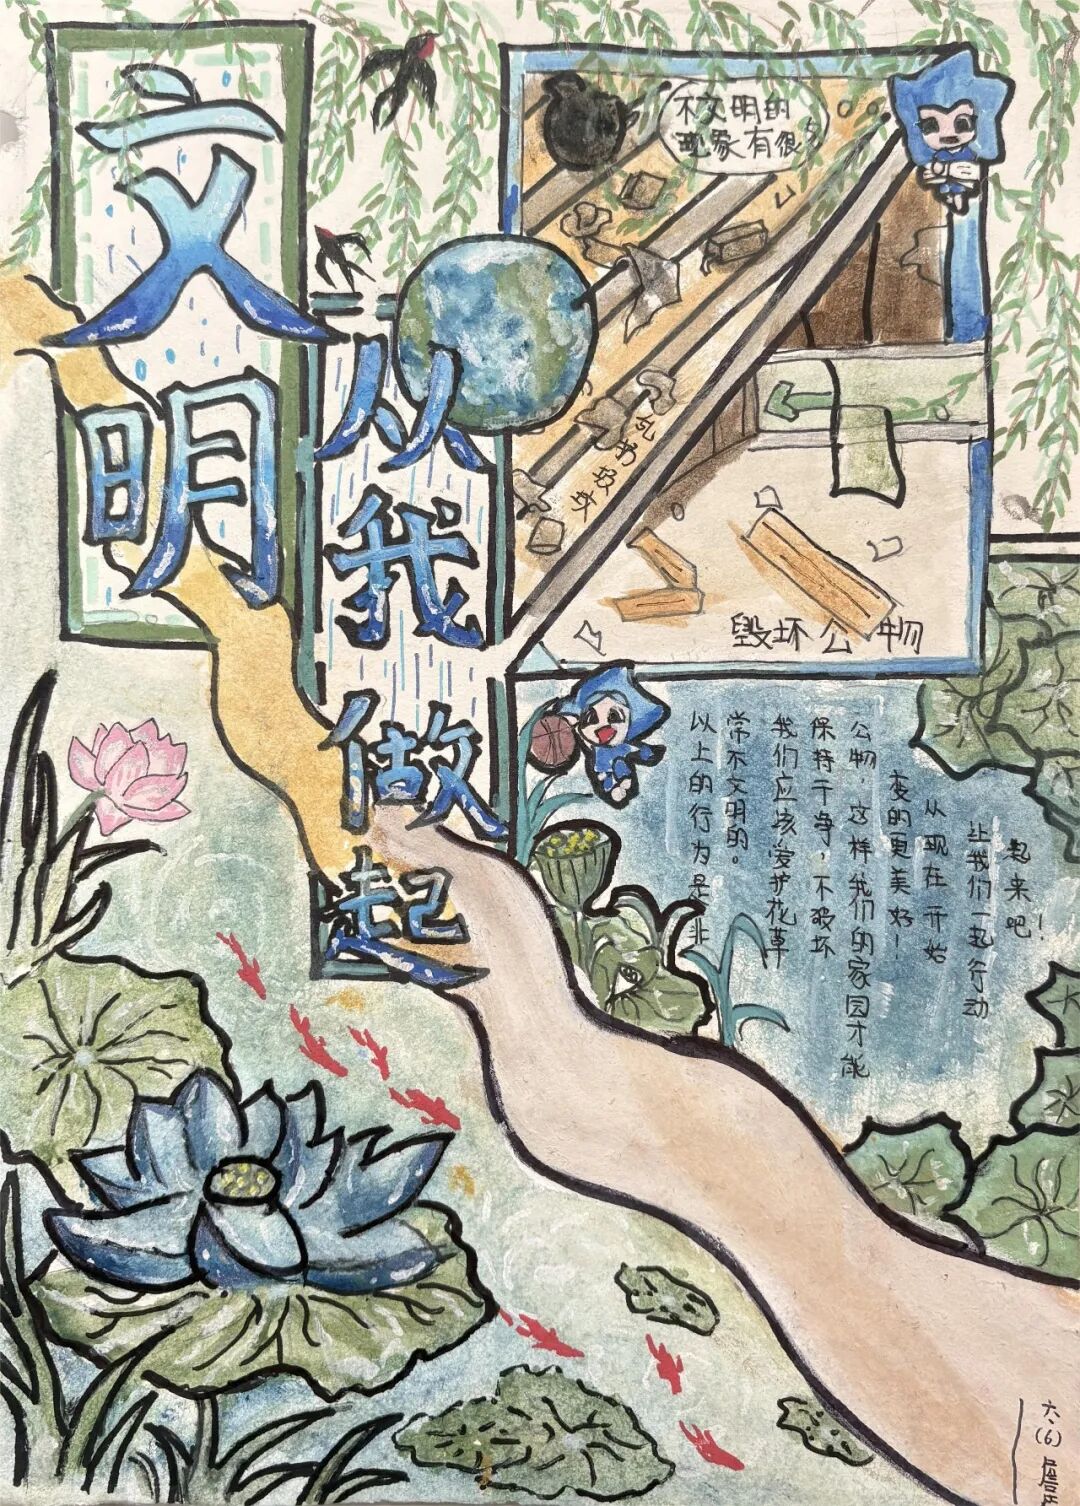 文明
从我做起
不文明的
现象有很多
乱扔垃圾
毁坏公物
以上的行为是非
常不文明的。
我们应该爱护花草
保持干净，不破坏
公物，这样我们的家园才能
变的更美好！
从现在开始
让我们一起行动
起来吧！
六、(6) 詹